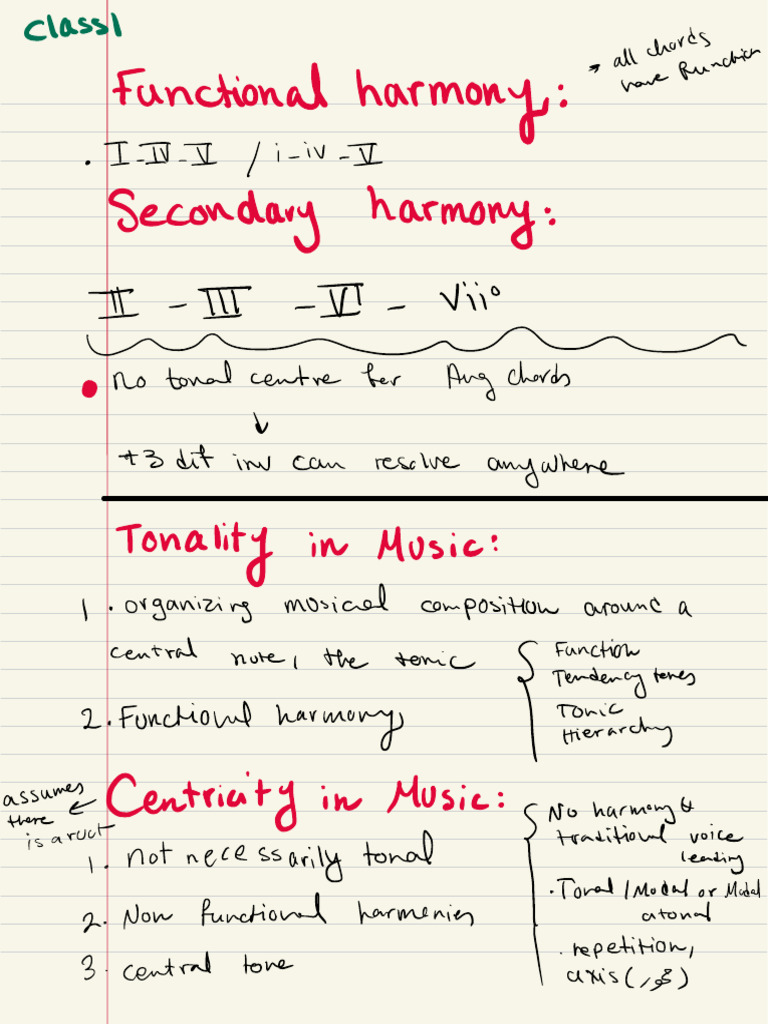 Class 1
Functional harmony:
→ all chords
have function
• I - IV - V / i - iv - V
Secondary harmony:
II - III - VI - vii°
• no tonal centre for Aug chords
↓
+3 dif inv can resolve anywhere
Tonality in Music:
1. organizing musical composition around a
central note, the tonic
2. Functional harmony
Function
Tendency tones
Tonic
Hierarchy
Centricity in Music:
assumes
there
is a root
1. not necessarily tonal
2. Non functional harmonies
3. central tone
No harmony &
traditional voice
leading
• Tonal / Modal or Modal
atonal
• repetition,
axis (محور)